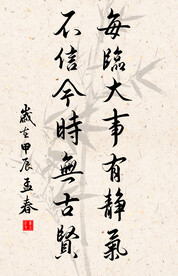 每臨大事有静氣
不信今時無古賢
歲在甲辰孟春